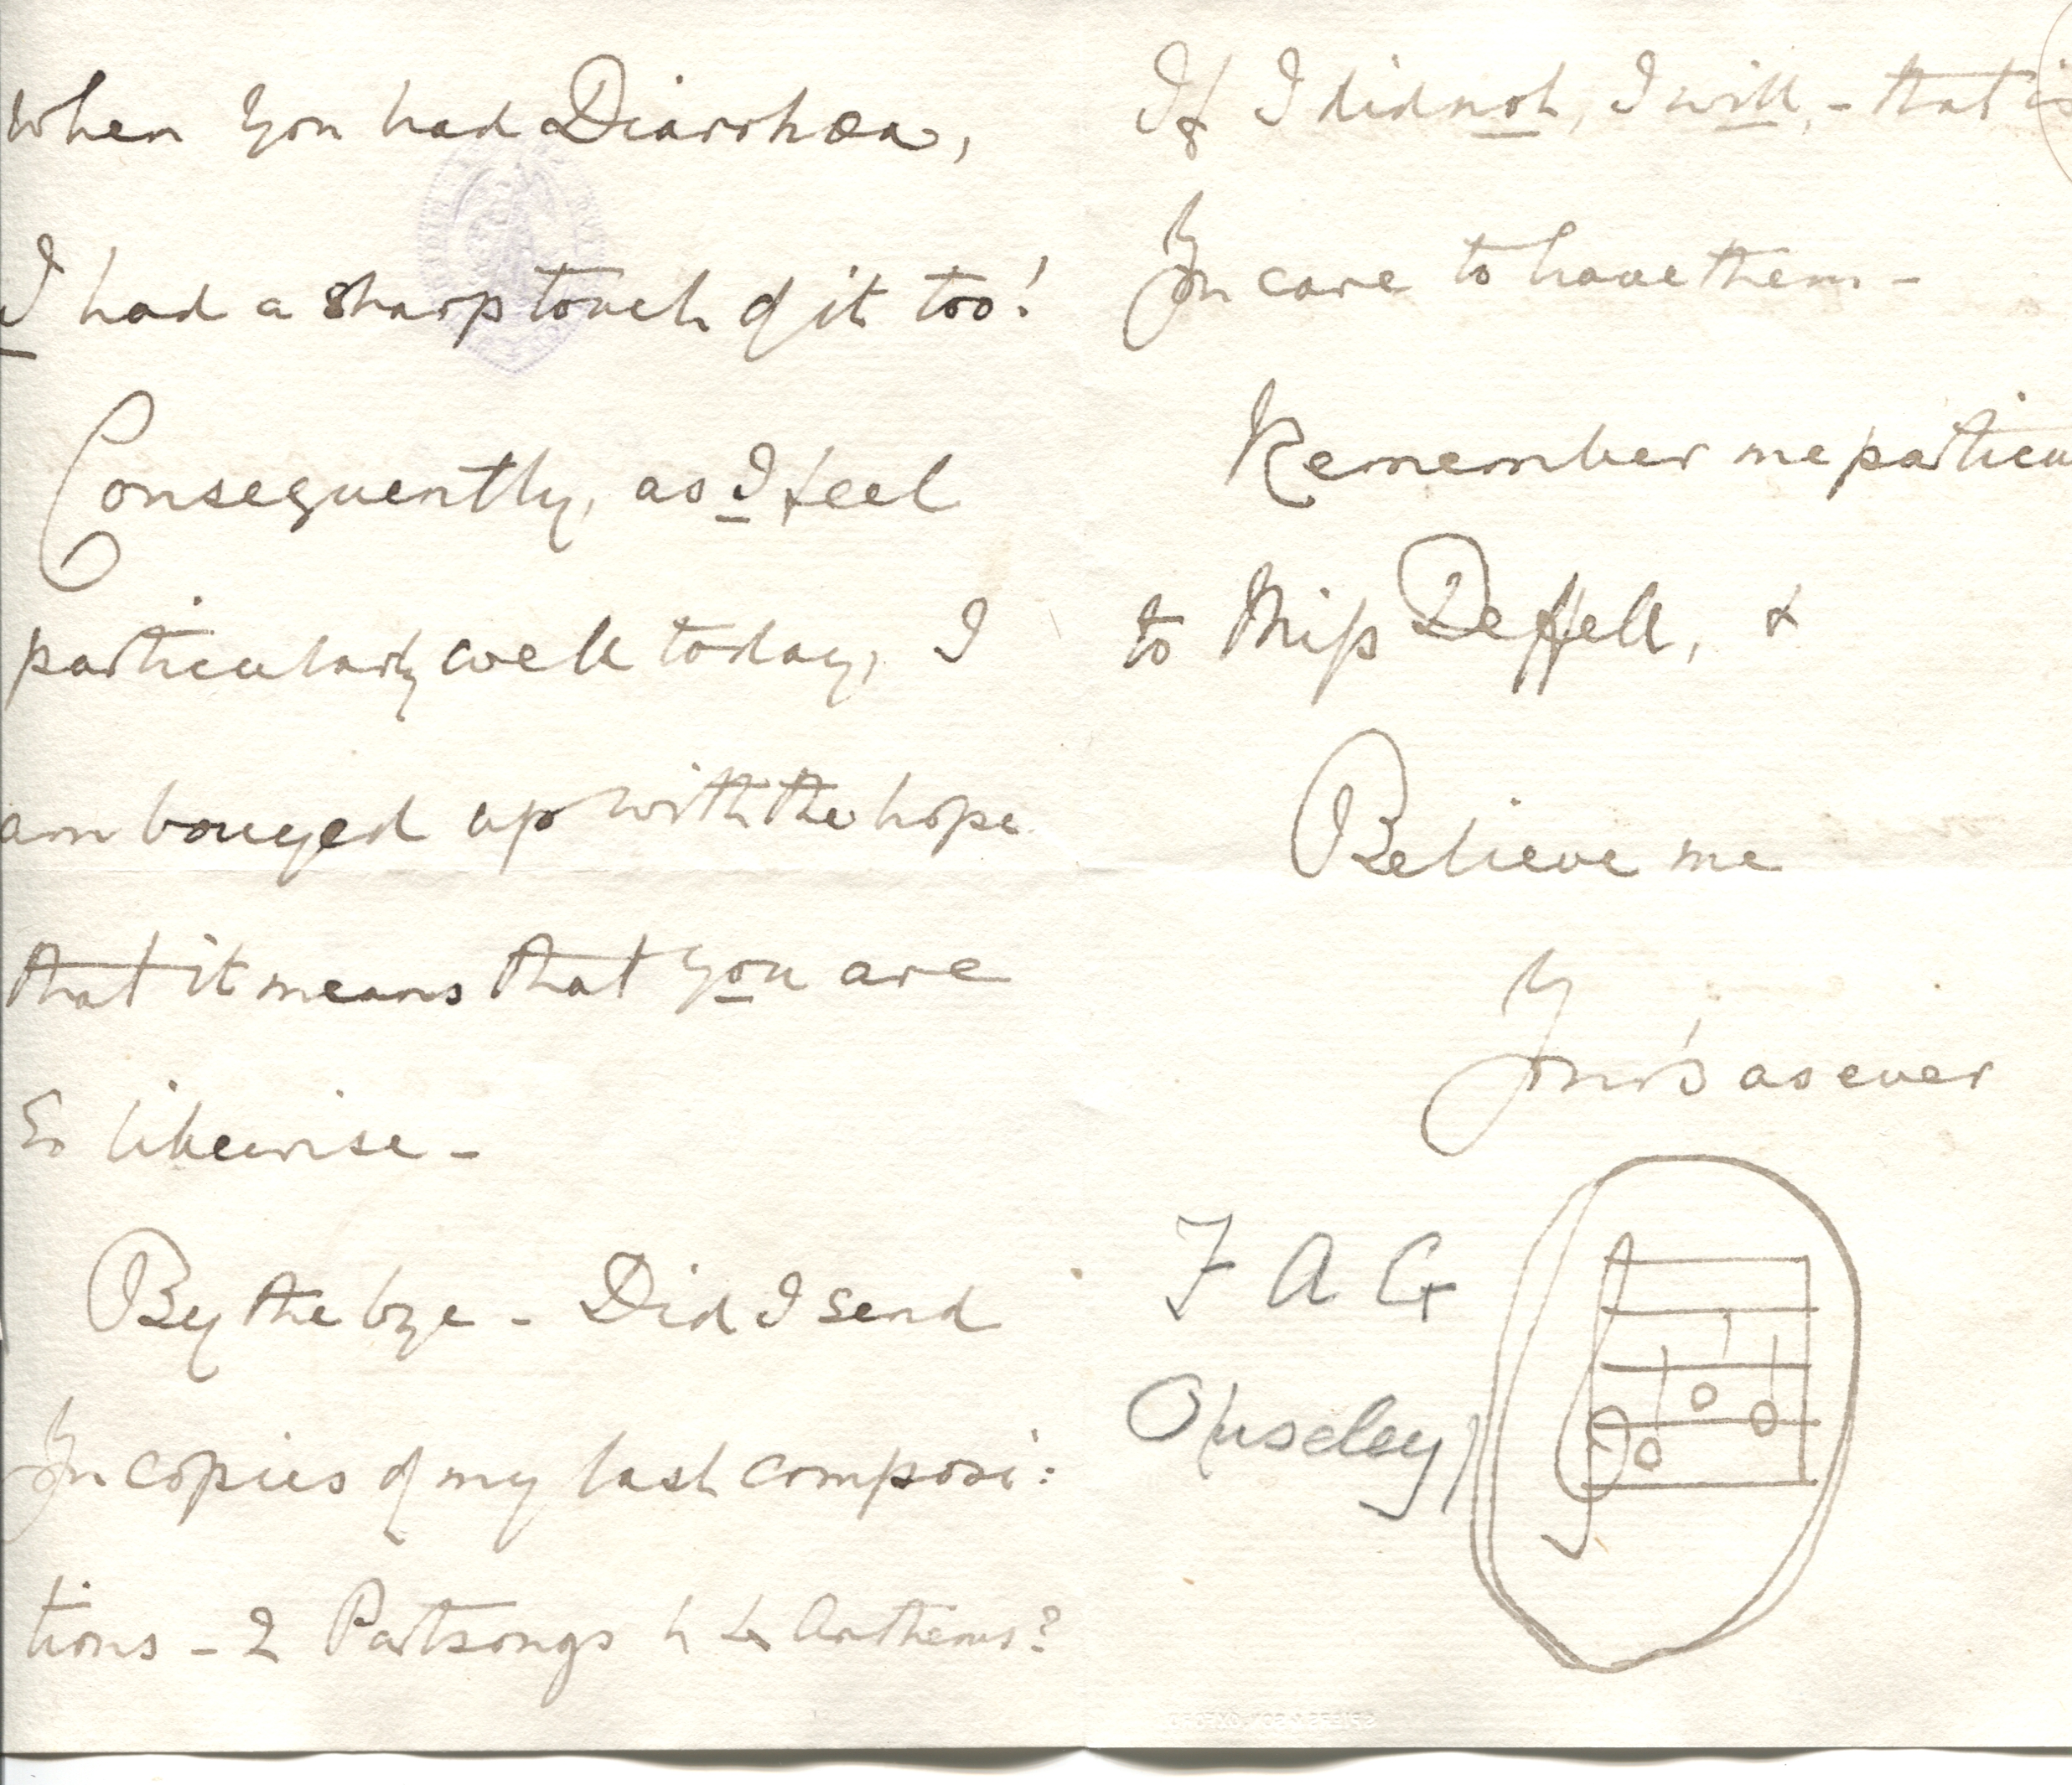 when you had Diarrhœa,
I had a sharp touch of it too!
Consequently, as I feel
particularly well today, I
am bouyed up with the hope
that it means that you are
so likewise -
By the bye - Did I send
You copies of my last composi:
tions - 2 Partsongs & 4 Anthems?
If I did not, I will, - that is
You care to have them -
Remember me particu
to Miss Deffell, &
Believe me
Your's as ever
F A G
Ouseley